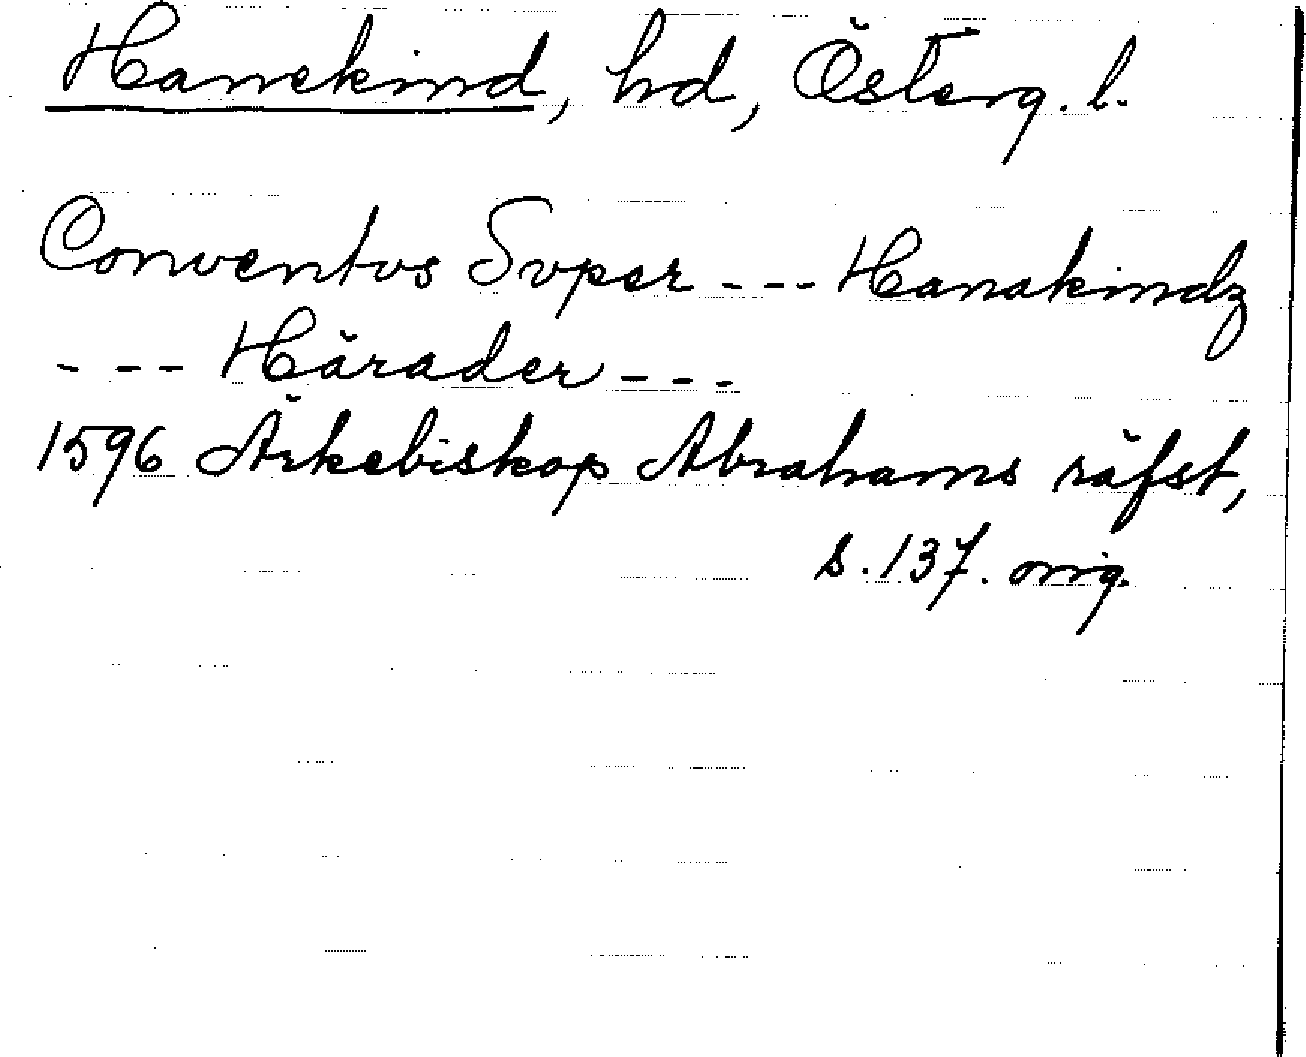 Hanekind, hd, Österg. l.
Conventvs Svper --- Hanakindz
--- Härader ---
1596 Ärkebiskop Abrahams räfst,
s. 137. orig.